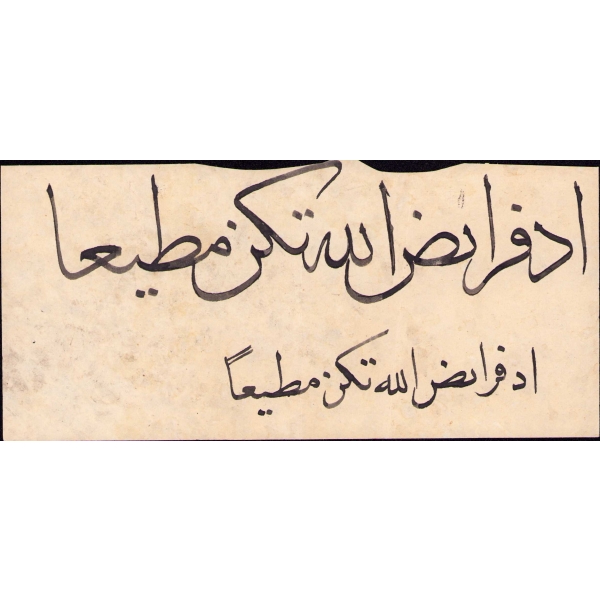 اد فرائض الله تكن مطيعا
اد فرائض الله تكن مطيعاً